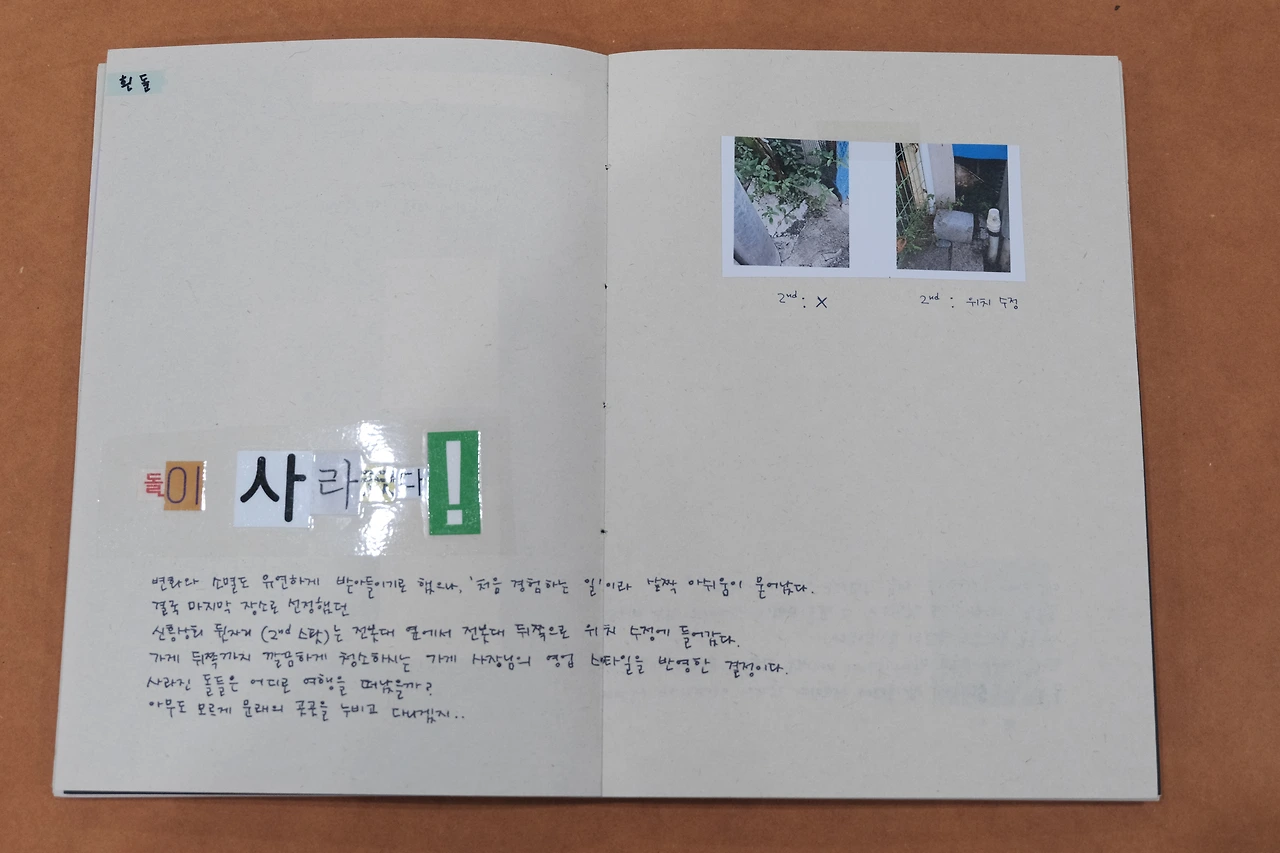 흰 돌
돌이 사라졌다!
변화와 소멸도 유연하게 받아들이기로 했으나, '처음 경험하는 일'이라 살짝 아쉬움이 묻어났다.
결국 마지막 장소로 선정했던
신흥상회 뒷자리 (2nd 스팟)는 전봇대 옆에서 전봇대 뒤쪽으로 위치 수정에 들어갔다.
가게 뒤쪽까지 깔끔하게 청소하시는 가게 사장님의 영업 스타일을 반영한 결정이다.
사라진 돌들은 어디로 여행을 떠났을까?
아무도 모르게 문래의 곳곳을 누비고 다니겠지..
2nd : X
2nd : 위치 수정